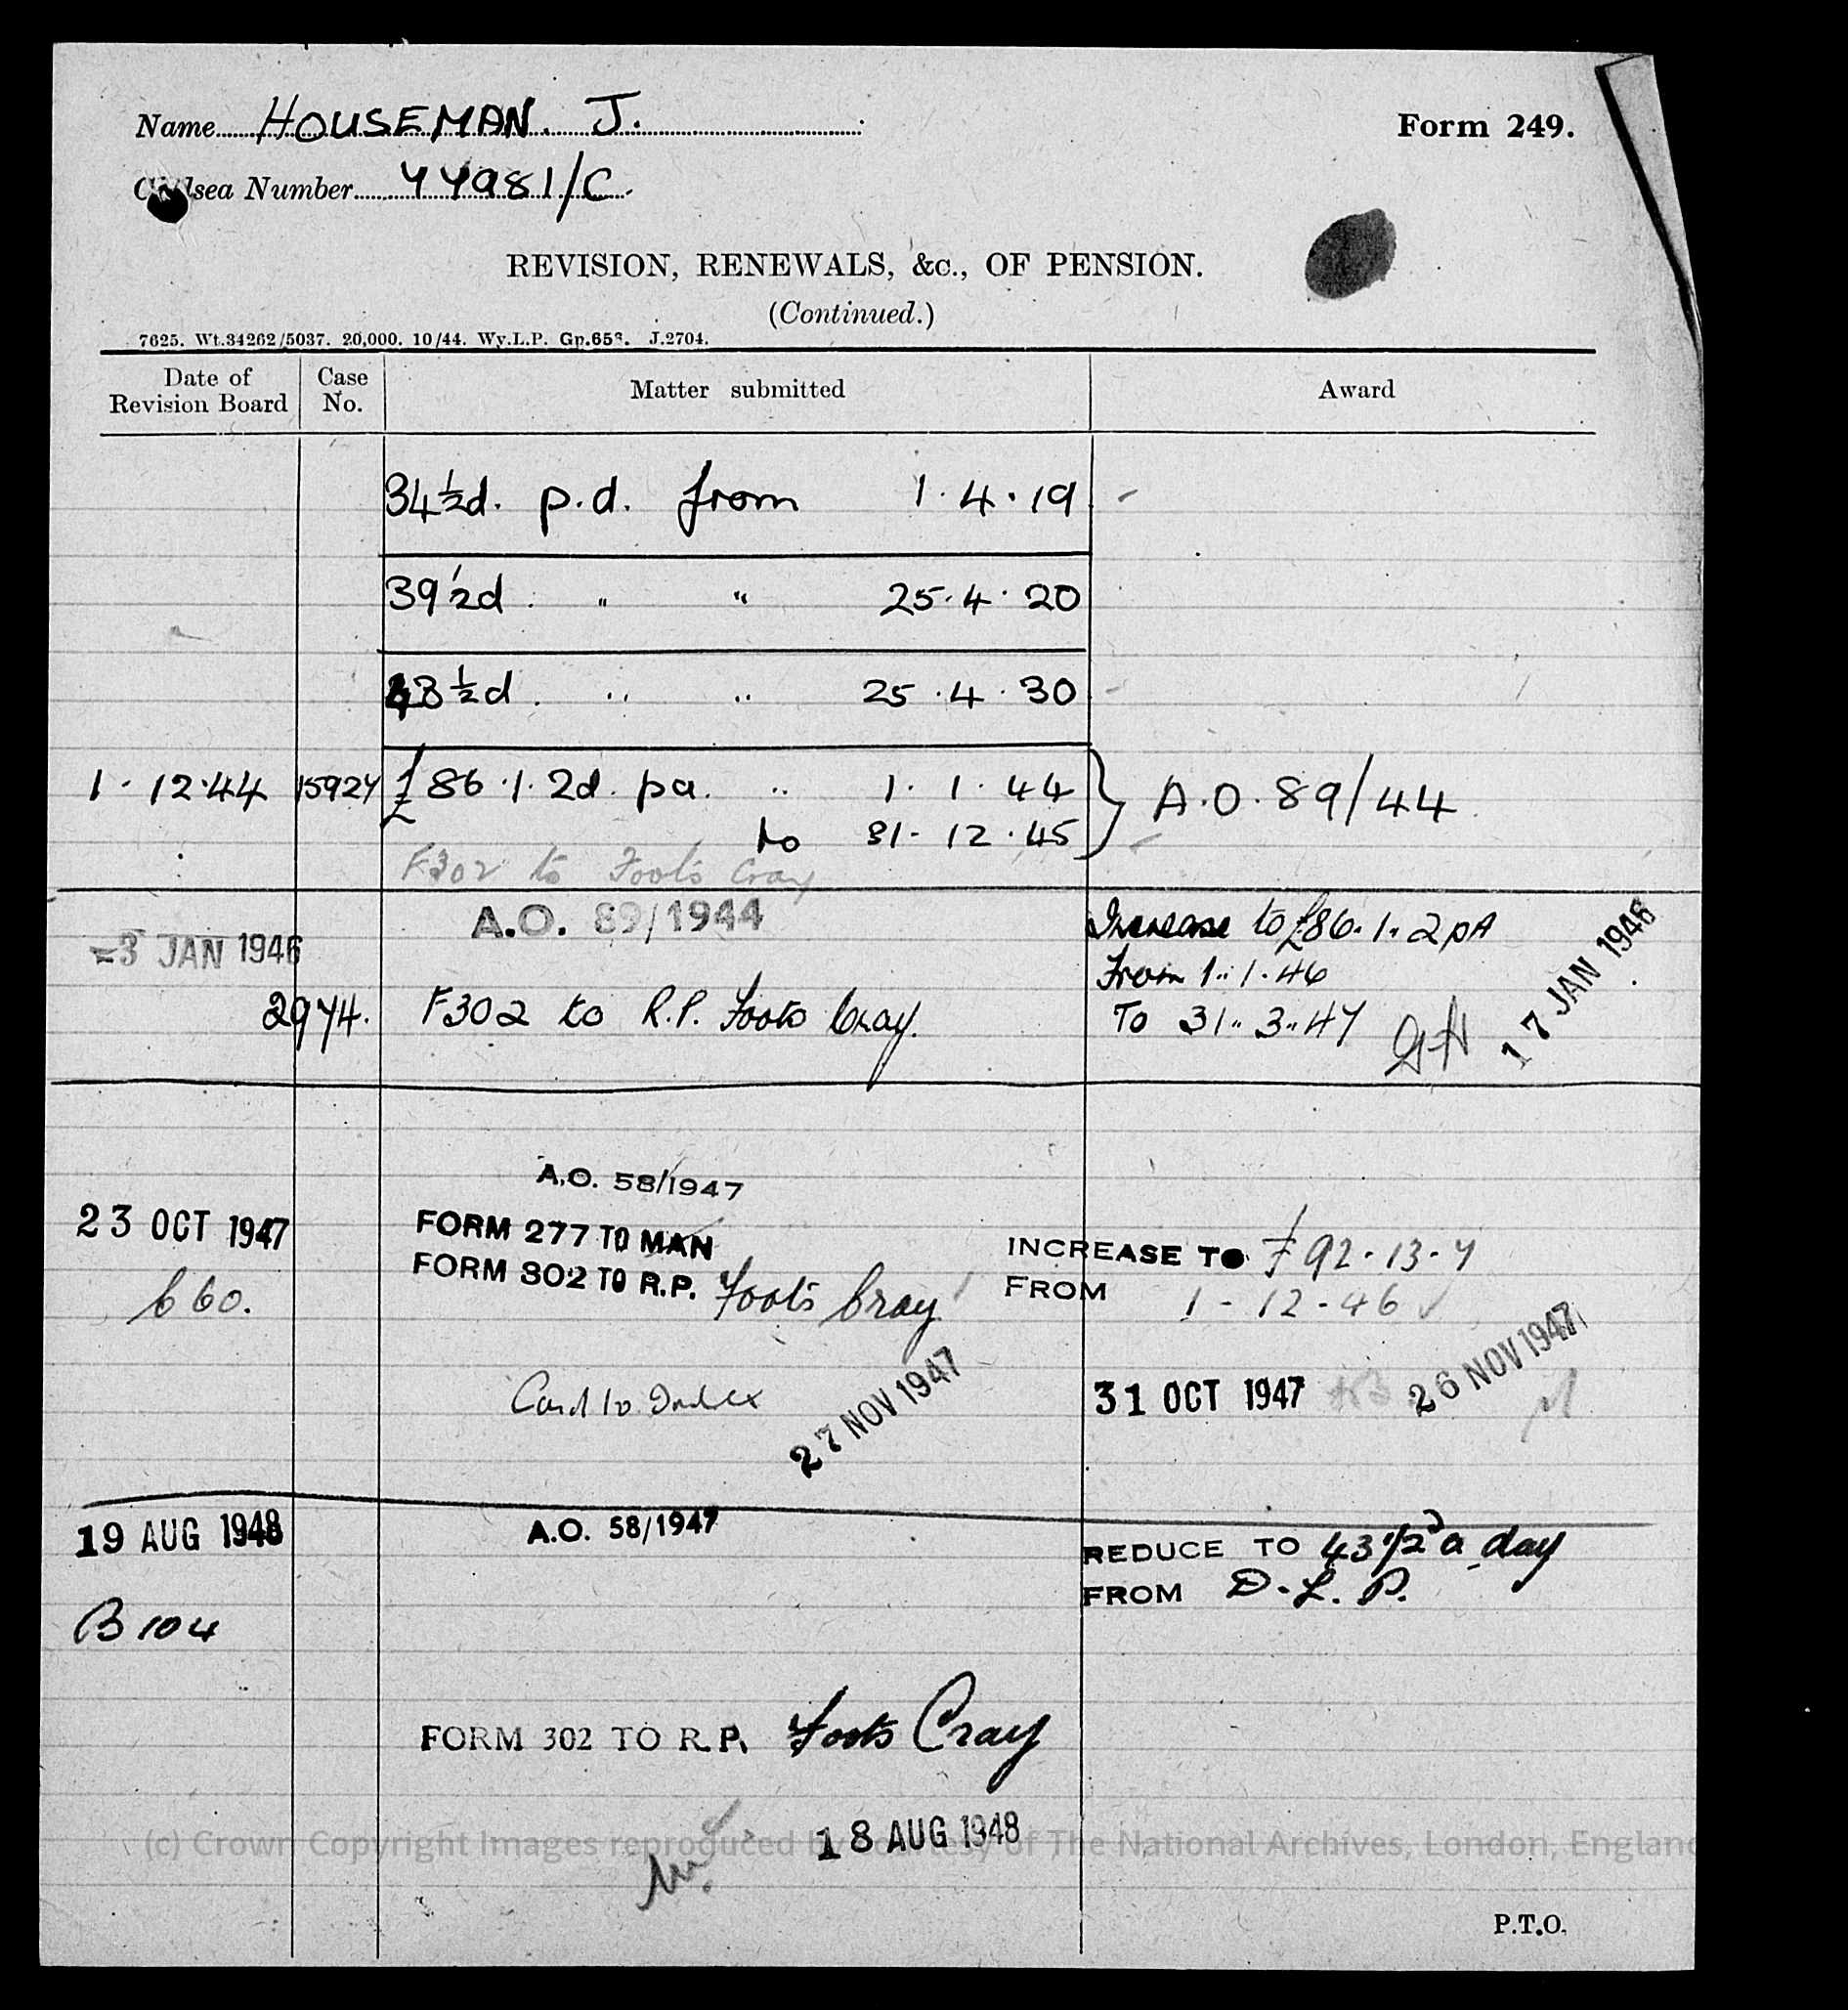 Name HOUSEMAN. J.
Form 249.
Chelsea Number 77981/C.
REVISION, RENEWALS, &c., OF PENSION.
(Continued.)
7625. Wt.34262/5037. 20,000. 10/44. Wy.L.P. Gp.658. J.2704.
Date of Revision Board
Case No.
Matter submitted
Award
34½d. p.d. from 1.4.19
39½d. " " 25.4.20
43½d. " " 25.4.30
1.12.44 15927 £86.1.2d. pa. " 1.1.44 } A.O.89/44
to 31.12.45
F302 to Foots Cray
-3 JAN 1946
A.O. 89/1944
Increase to £86.1.2 pA
From 1.1.46
To 31.3.47
17 JAN 1946
2974. F302 to R.P. Foots Cray.
A.O. 58/1947
23 OCT 1947
FORM 277 TO MAN
FORM 302 TO R.P. Foots Cray
INCREASE TO £92-13-7
FROM 1-12-46
660.
Card to Index
27 NOV 1947
31 OCT 1947
26 NOV 1947
19 AUG 1948
A.O. 58/1947
REDUCE TO 43½d a day
FROM D.L.P.
B104
FORM 302 TO R.P. Foots Cray
18 AUG 1948
(c) Crown Copyright Images reproduced by courtesy of The National Archives, London, England
P.T.O.